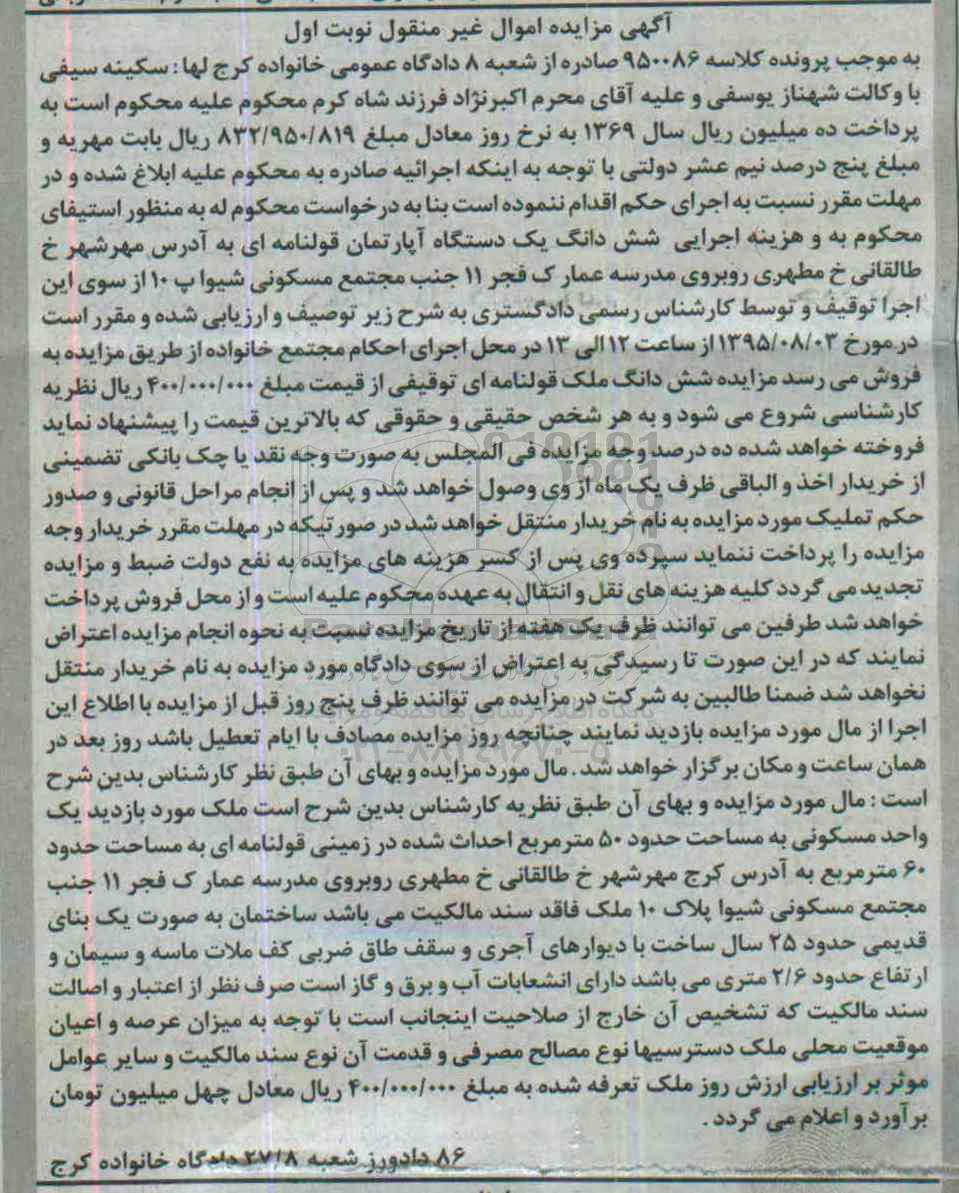 آگهی مزایده اموال غیر منقول نوبت اول
به موجب پرونده کلاسه ۹۵۰۰۸۶ صادره از شعبه ۸ دادگاه عمومی خانواده کرج لها : سکینه سیفی
با وکالت شهناز یوسفی و علیه آقای محرم اکبرنژاد فرزند شاه کرم محکوم علیه محکوم است به
پرداخت ده میلیون ریال سال ۱۳۶۹ به نرخ روز معادل مبلغ ۸۳۲/۹۵۰/۸۱۹ ریال بابت مهریه و
مبلغ پنج درصد نیم عشر دولتی با توجه به اینکه اجرائیه صادره به محکوم علیه ابلاغ شده و در
مهلت مقرر نسبت به اجرای حکم اقدام ننموده است بنا به درخواست محکوم له به منظور استیفای
محکوم به و هزینه اجرایی شش دانگ یک دستگاه آپارتمان قولنامه ای به آدرس مهرشهر خ
طالقانی خ مطهری روبروی مدرسه عمار ک فجر ۱۱ جنب مجتمع مسکونی شیوا پ ۱۰ از سوی این
اجرا توقیف و توسط کارشناس رسمی دادگستری به شرح زیر توصیف و ارزیابی شده و مقرر است
در مورخ ۱۳۹۵/۰۸/۰۳ از ساعت ۱۲ الی ۱۳ در محل اجرای احکام مجتمع خانواده از طریق مزایده به
فروش می رسد مزایده شش دانگ ملک قولنامه ای توقیفی از قیمت مبلغ ۴۰۰/۰۰۰/۰۰۰ ریال نظریه
کارشناسی شروع می شود و به هر شخص حقیقی و حقوقی که بالاترین قیمت را پیشنهاد نماید
فروخته خواهد شده ده درصد وجه مزایده فی المجلس به صورت وجه نقد یا چک بانکی تضمینی
از خریدار اخذ و الباقی ظرف یک ماه از وی وصول خواهد شد و پس از انجام مراحل قانونی و صدور
حکم تملیک مورد مزایده به نام خریدار منتقل خواهد شد در صورتیکه در مهلت مقرر خریدار وجه
مزایده را پرداخت ننماید سپرده وی پس از کسر هزینه های مزایده به نفع دولت ضبط و مزایده
تجدید می گردد کلیه هزینه های نقل و انتقال به عهده محکوم علیه است و از محل فروش پرداخت
خواهد شد طرفین می توانند ظرف یک هفته از تاریخ مزایده نسبت به نحوه انجام مزایده اعتراض
نمایند که در این صورت تا رسیدگی به اعتراض از سوی دادگاه مورد مزایده به نام خریدار منتقل
نخواهد شد ضمنا طالبین به شرکت در مزایده می توانند ظرف پنج روز قبل از مزایده با اطلاع این
اجرا از مال مورد مزایده بازدید نمایند چنانچه روز مزایده مصادف با ایام تعطیل باشد روز بعد در
همان ساعت و مکان برگزار خواهد شد . مال مورد مزایده و بهای آن طبق نظر کارشناس بدین شرح
است : مال مورد مزایده و بهای آن طبق نظریه کارشناس بدین شرح است ملک مورد بازدید یک
واحد مسکونی به مساحت حدود ۵۰ مترمربع احداث شده در زمینی قولنامه ای به مساحت حدود
۶۰ مترمربع به آدرس کرج مهرشهر خ طالقانی خ مطهری روبروی مدرسه عمار ک فجر ۱۱ جنب
مجتمع مسکونی شیوا پلاک ۱۰ ملک فاقد سند مالکیت می باشد ساختمان به صورت یک بنای
قدیمی حدود ۲۵ سال ساخت با دیوارهای آجری و سقف طاق ضربی کف ملات ماسه و سیمان و
ارتفاع حدود ۲/۶ متری می باشد دارای انشعابات آب و برق و گاز است صرف نظر از اعتبار و اصالت
سند مالکیت که تشخیص آن خارج از صلاحیت اینجانب است با توجه به میزان عرصه و اعیان
موقعیت محلی ملک دسترسیها نوع مصالح مصرفی و قدمت آن نوع سند مالکیت و سایر عوامل
موثر بر ارزیابی ارزش روز ملک تعرفه شده به مبلغ ۴۰۰/۰۰۰/۰۰۰ ریال معادل چهل میلیون تومان
برآورد و اعلام می گردد .
۸۶ دادورز شعبه ۲۷/۸ دادگاه خانواده کرج